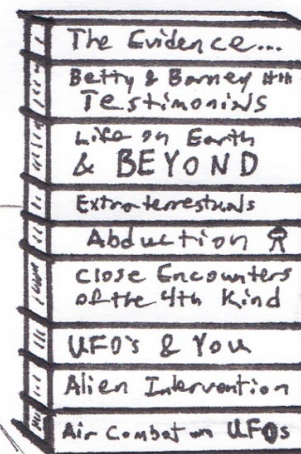 The Evidence...
Betty & Barney
Testimonials
Life on Earth
& BEYOND
Extraterrestrials
Abduction
Close Encounters
of the 4th Kind
UFO's & You
Alien Intervention
Air Combat on UFOs